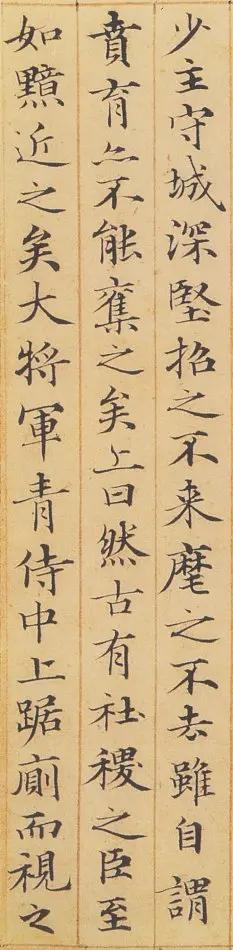 少主守城深堅招之不来麾之不去雖自謂
賁育亦不能奪之矣上曰然古有社稷之臣至
如黯近之矣大将軍青侍中上踞廁而視之